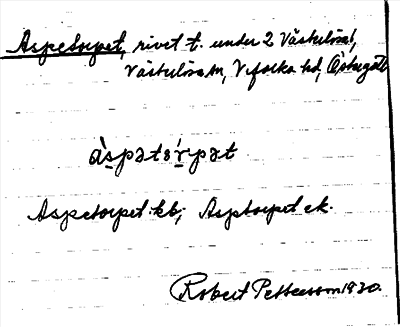 Aspetorpet, rivet t. under 2 Västerlösa,
Västerlösa sn, Vifolka hd, Östergötl
Aspetorpet kb; Asptorpet ek.
Robert Pettersson 1930.